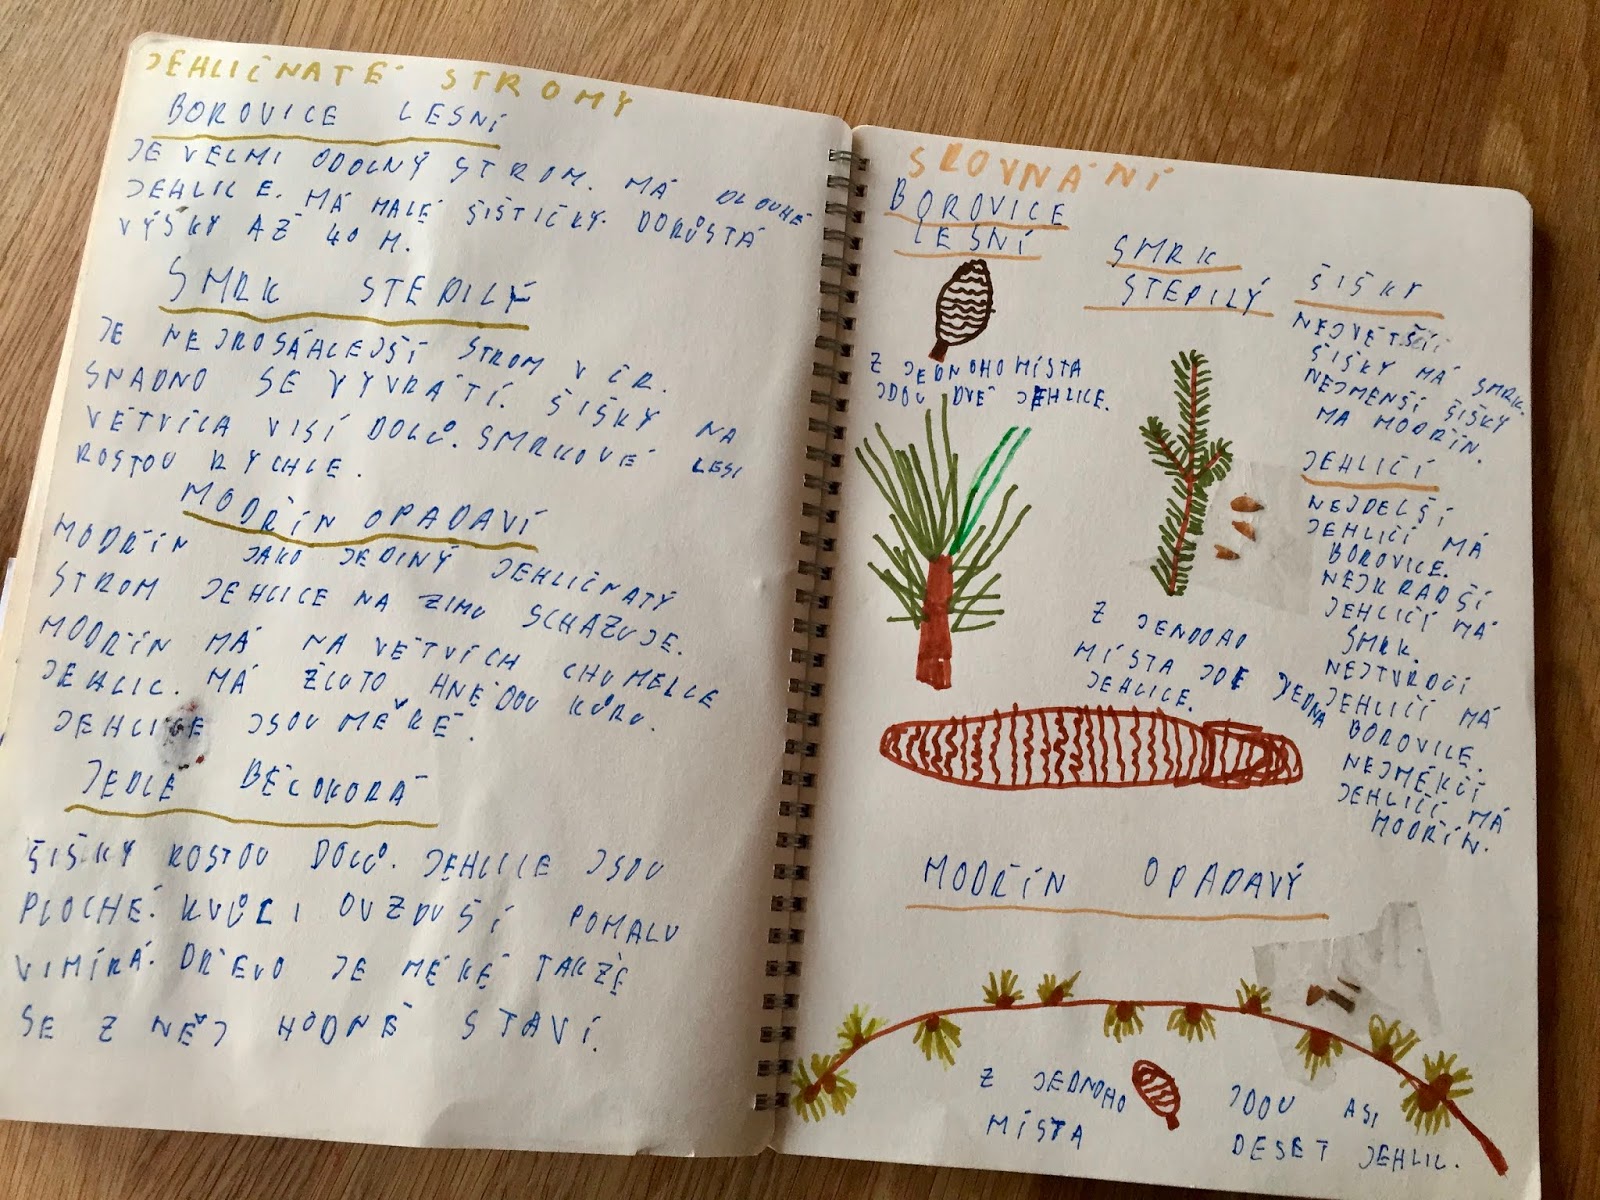 JEHLIČNATÉ STROMY
BOROVICE LESNÍ
JE VELMI ODOLNÝ STROM. MÁ DLOUHÉ
JEHLICE. MÁ MALÉ ŠIŠTIČKY. DORŮSTÁ
VÝŠKY AŽ 40 M.
SMRK STEPILÝ
JE NEJROSÁHLEJŠÍ STROM V ČR.
SNADNO SE VYVRÁTÍ. ŠIŠKY NA
VĚTVÍCH VISÍ DOLŮ. SMRKOVÉ LESI
ROSTOU RYCHLE.
MODŘÍN OPADAVÍ
MODŘÍN JAKO JEDINÝ JEHLIČNATÝ
STROM JEHLICE NA ZIMU SCHAZUJE.
MODŘÍN MÁ NA VĚTVÍCH CHUMELCE
JEHLIC. MÁ ŽLUTO HNĚDOU KŮRU.
JEHLICE JSOU MĚKÉ.
JEDLE BĚLOKORÁ
ŠIŠKY ROSTOU DOLŮ. JEHLICE JSOU
PLOCHÉ. KVŮLI OVZDUŠÍ POMALU
VIMÍRÁ. DŘEVO JE MĚKÉ TAKŽE
SE Z NĚJ HODNĚ STAVÍ.
SROVNÁNÍ
BOROVICE
LESNÍ
Z JEDNOHO MÍSTA
JDOU DVĚ JEHLICE.
SMRK
STEPILÝ
Z JENDOHO
MÍSTA JDE JEDNA
JEHLICE.
ŠIŠKY
NEJVĚTŠÍ
ŠIŠKY MÁ SMRK.
NEJMENŠÍ ŠIŠKY
MA MODŘÍN.
JEHLIČÍ
NEJDELŠÍ
JEHLIČÍ MÁ
BOROVICE.
NEJKRADŠÍ
JEHLIČÍ MÁ
SMRK.
NEJTVRDČÍ
JEHLIČÍ MÁ
BOROVICE.
NEJMĚKČÍ
JEHLIČÍ MÁ
MODŘÍN.
MODŘÍN OPADAVÝ
Z JEDNOHO
MÍSTA
JDOU ASI
DESET JEHLIC.